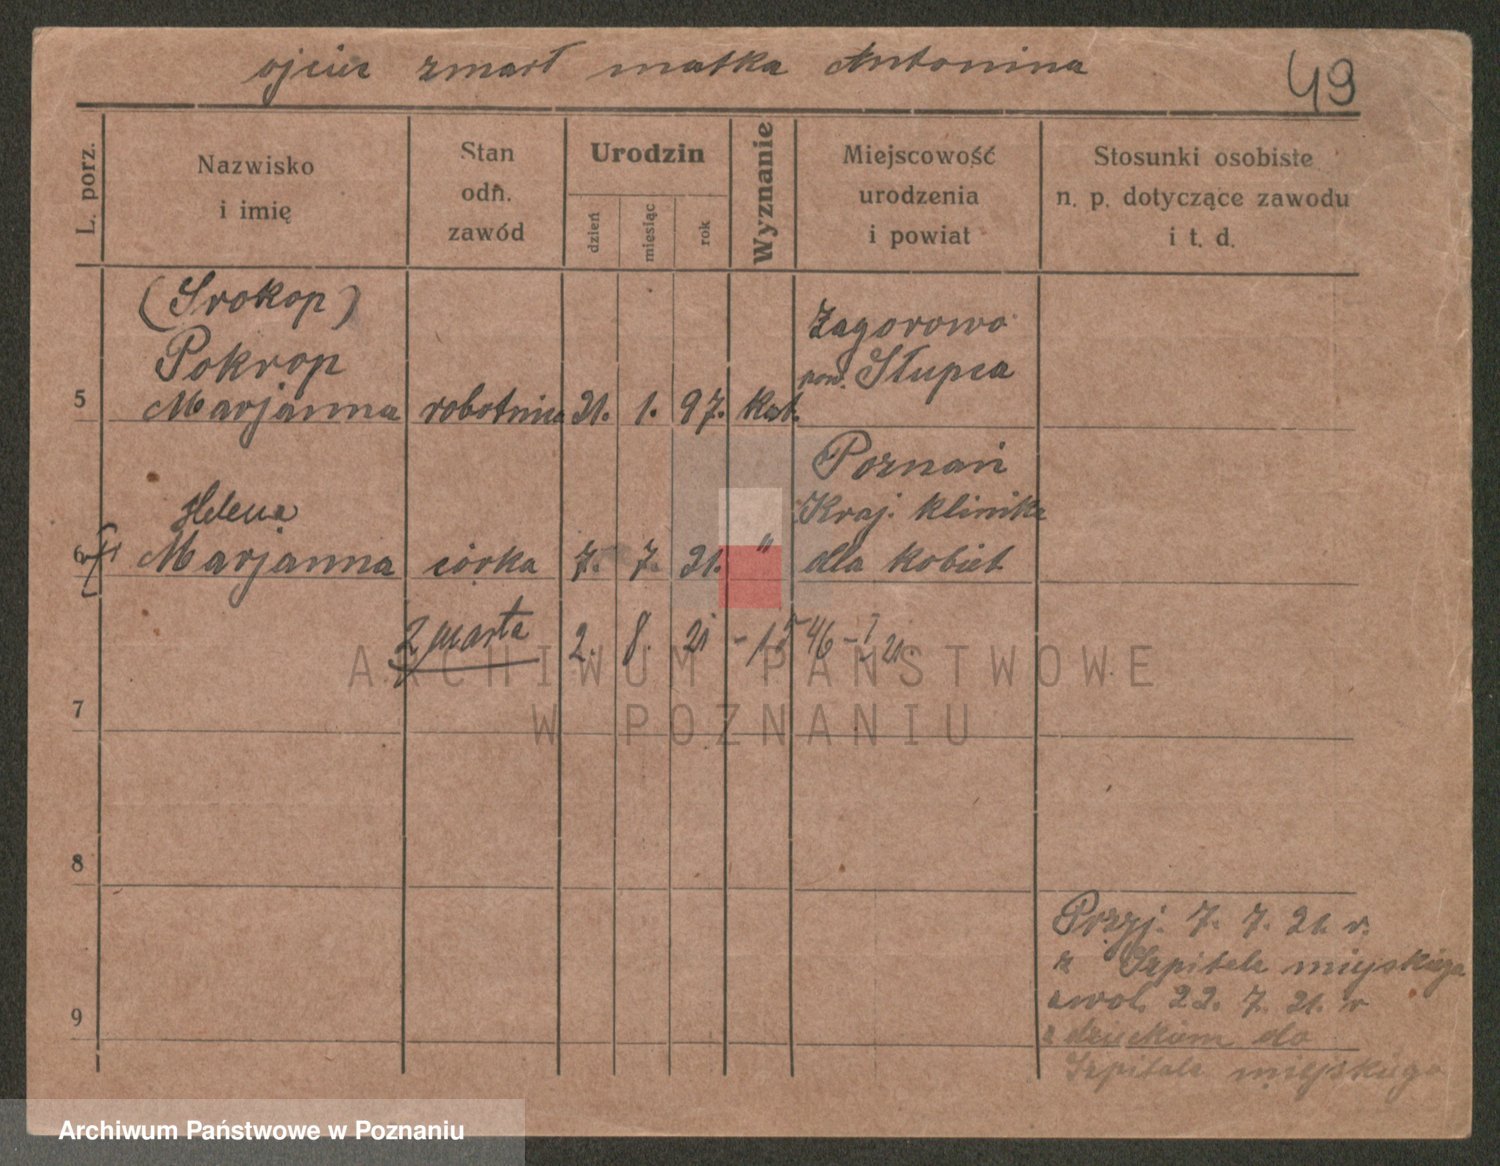 ojciec zmarł matka Antonina
49
L. porz.
Nazwisko
i imię
Stan
odn.
zawód
Urodzin
dzień
miesiąc
rok
Wyznanie
Miejscowość
urodzenia
i powiat
Stosunki osobiste
n. p. dotyczące zawodu
i t. d.
(Srokop)
Pokrop
5 Marjanna robotnica 21. 1. 97. kat.
Zagorowo
pow. Słupca
Helena
6 Marjanna córka 7. 7. 21. "
Poznań
Kraj. klinika
dla kobiet
zmarła 2. 8. 21
7
8
9
Przyj. 7. 7. 21. r.
z Szpitala miejskiego
zwol. 22. 7. 21. r
z dzieckiem do
Szpitala miejskiego
ARCHIWUM PAŃSTWOWE
W POZNANIU
Archiwum Państwowe w Poznaniu